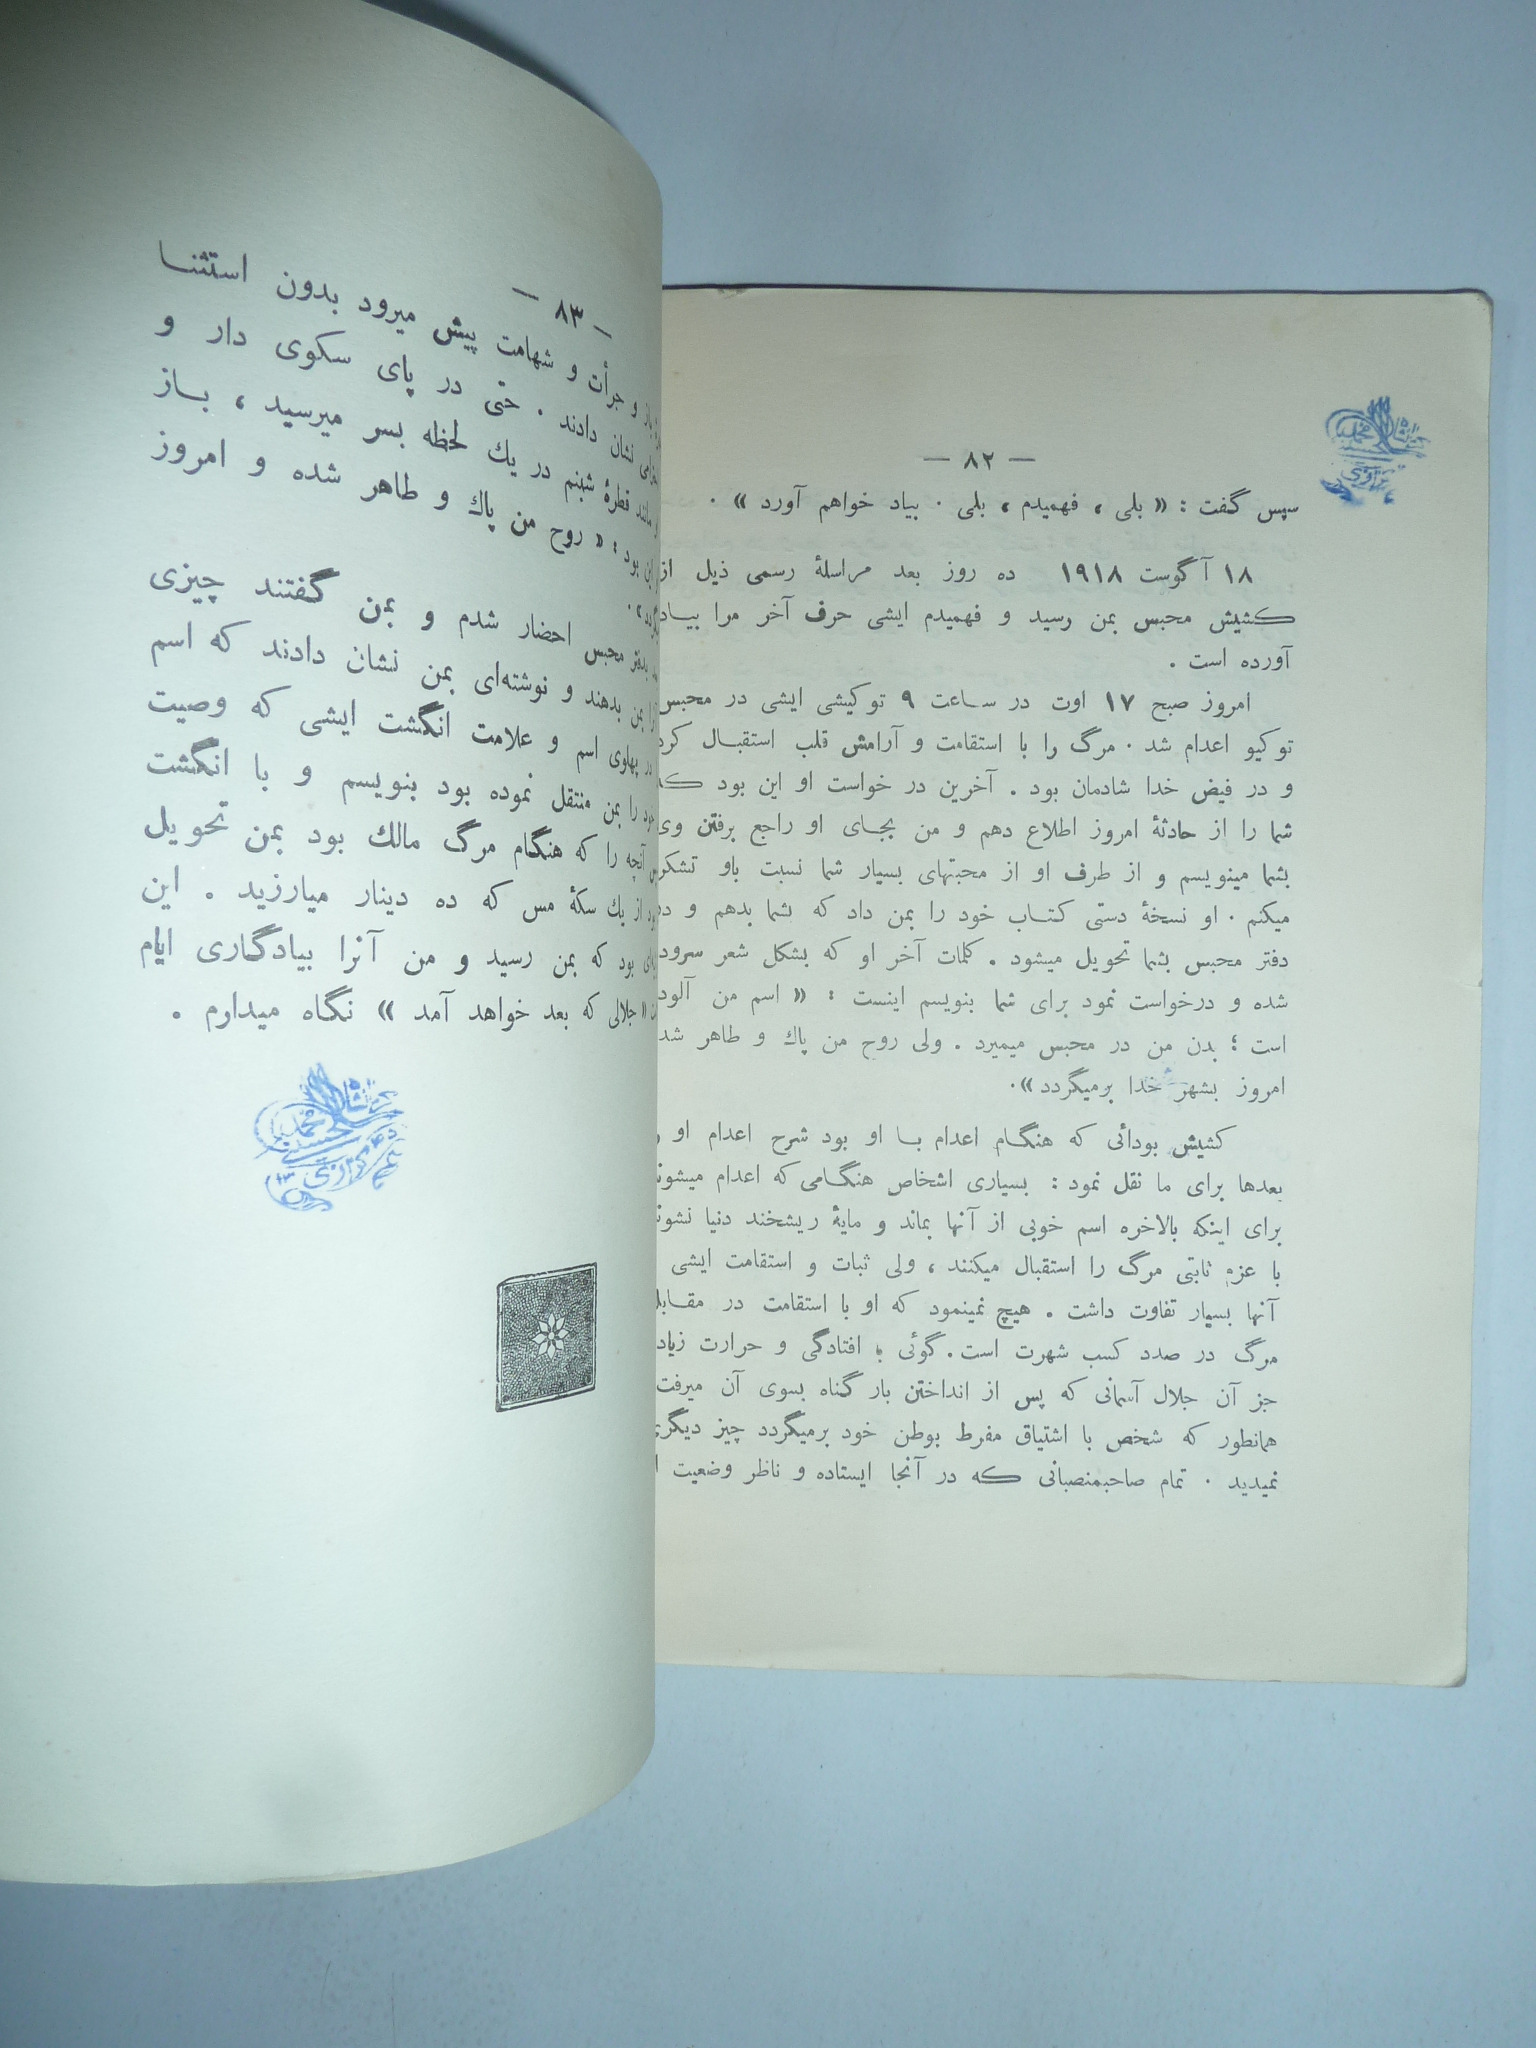 — ۸۲ —
سپس گفت : « بلی ، فهمیدم ، بلی . بیاد خواهم آورد » .
۱۸ آگوست ۱۹۱۸ ده روز بعد مراسلهٔ رسمی ذیل از
کشیش محبس بمن رسید و فهمیدم ایشی حرف آخر مرا بیاد
آورده است .
امروز صبح ۱۷ اوت در ساعت ۹ توکیشی ایشی در محبس
توکیو اعدام شد . مرگ را با استقامت و آرامش قلب استقبال کرد
و در فیض خدا شادمان بود . آخرین در خواست او این بود
شما را از حادثهٔ امروز اطلاع دهم و من بجای او راجع برفتن وی
بشما مینویسم و از طرف او از محبتهای بسیار شما نسبت باو تشکر
میکنم . او نسخهٔ دستی کتاب خود را بمن داد که بشما بدهم و در
دفتر محبس بشما تحویل میشود . کلمات آخر او که بشکل شعر سرود
شده و درخواست نمود برای شما بنویسم اینست : « اسم من آلود
است ؛ بدن من در محبس میمیرد . ولی روح من پاك و طاهر شد
امروز بشهر خدا برمیگردد » .
کشیش بودائی که هنگام اعدام با او بود شرح اعدام او
بعدها برای ما نقل نمود : بسیاری اشخاص هنگامی که اعدام میشوند
برای اینکه بالاخره اسم خوبی از آنها بماند و مایهٔ ریشخند دنیا نشوند
با عزم ثابتی مرگ را استقبال میکنند ، ولی ثبات و استقامت ایشی
آنها بسیار تفاوت داشت . هیچ نمینمود که او با استقامت در مقابل
مرگ در صدد کسب شهرت است . گوئی با افتادگی و حرارت زیاد
جز آن جلال آسمانی که پس از انداختن بار گناه بسوی آن میرفت
همانطور که شخص با اشتیاق مفرط بوطن خود برمیگردد چیز دیگری
نمیدید . تمام صاحبمنصبانی که در آنجا ایستاده و ناظر وضعیت
— ۸۳ —
و جرأت و شهامت پیش میرود بدون استثنا
نشان دادند . حتی در پای سکوی دار و
مانند قطرهٔ شبنم در یك لحظه بسر میرسید ، باز
این بود : « روح من پاك و طاهر شده و امروز
» .
بدفتر محبس احضار شدم و بمن گفتند چیزی
بمن بدهند و نوشته‌ای بمن نشان دادند که اسم
در پهلوی اسم و علامت انگشت ایشی که وصیت
خود را بمن منتقل نموده بود بنویسم و با انگشت
آنچه را که هنگام مرگ مالك بود بمن تحویل
از یك سکهٔ مس که ده دینار میارزید . این
بود که بمن رسید و من آنرا بیادگاری ایام
« جلالی که بعد خواهد آمد » نگاه میدارم .